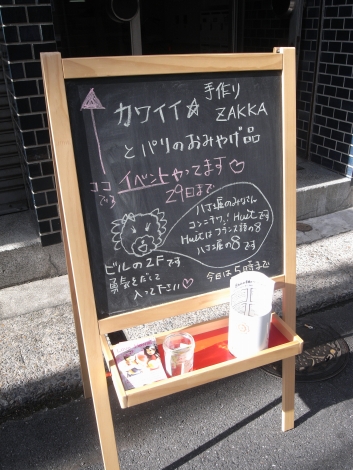 カワイイ☆ 手作り
ZAKKA
とパリのおみやげ品
ココ
イベントやってます♡
29日まで
コンニチワ! Huitです
Huitはフランス語の8
ハコ屋の8です
ビルの2Fです
勇気をだして
入って下さい♡
今日は5時まで